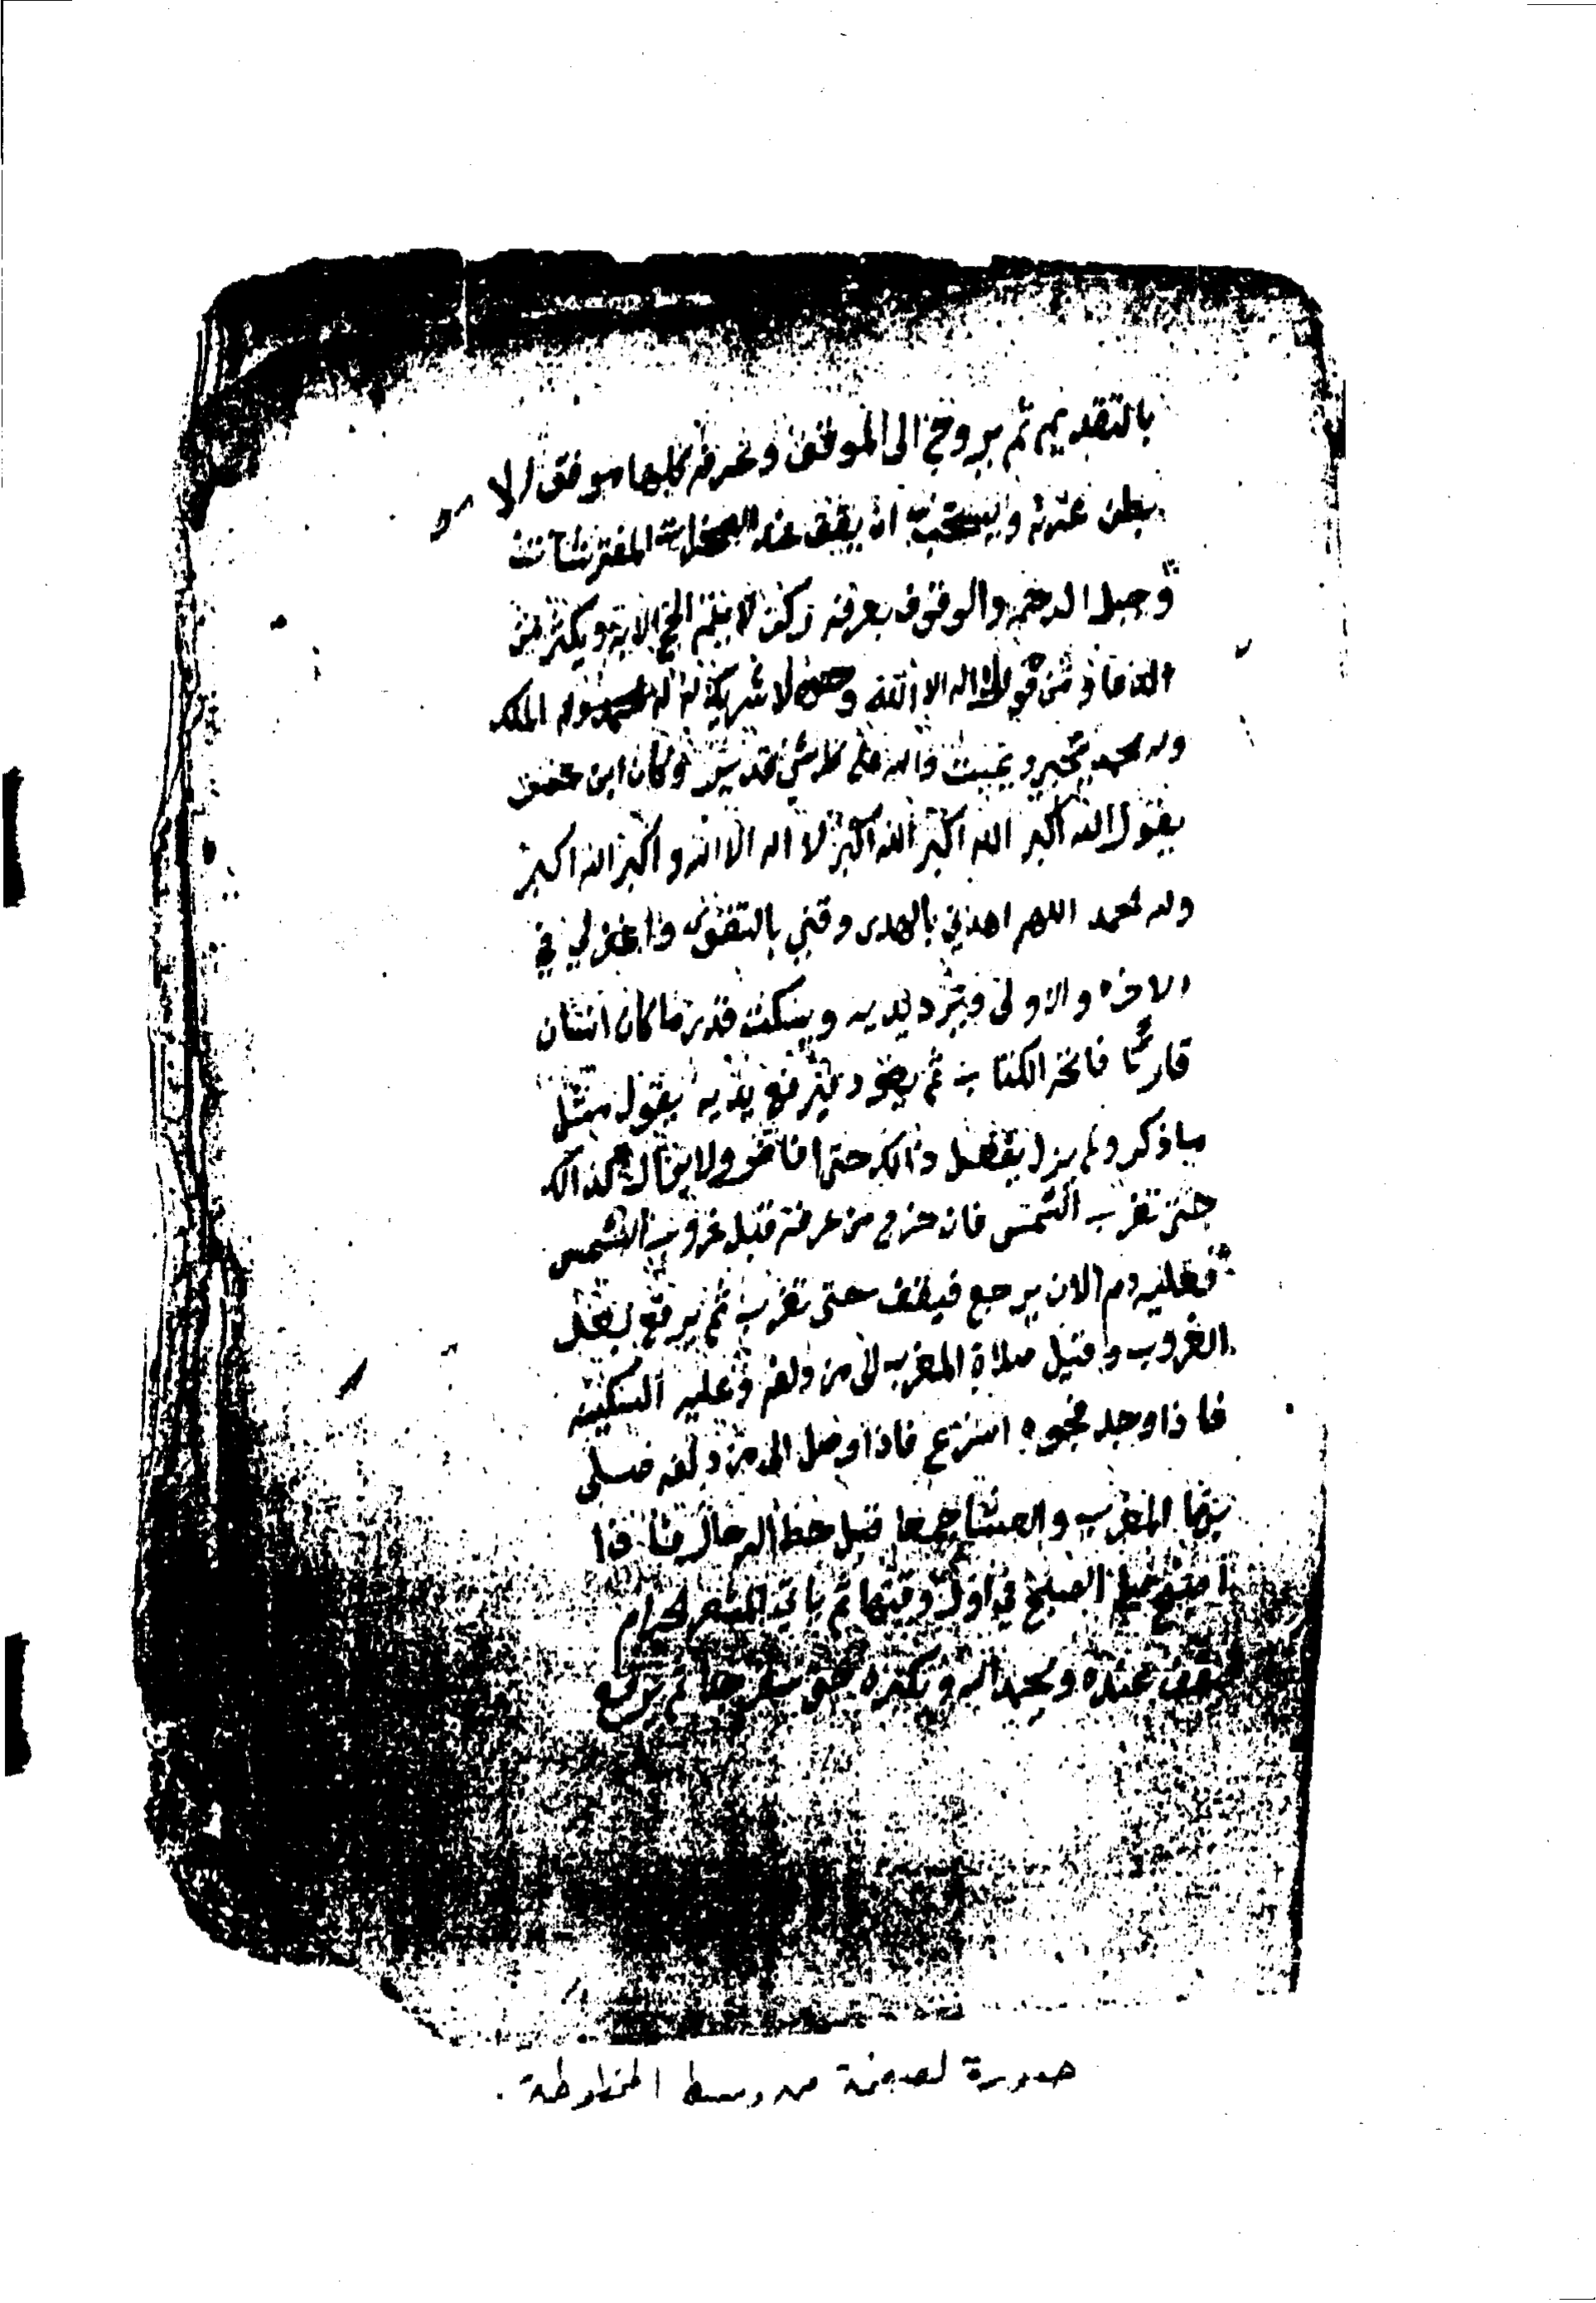 بالتقديم ثم يروح الى الموقف وعرفة كلها موقف الا
بطن عرنه ويستحب ان يقف عند الصخرات المفترشات
وجبل الرحمه والوقوف بعرفه ركن لا يتم الحج الا به ويكثر من
الدعا ومن قول لا اله الا الله وحده لا شريك له له الملك
وله الحمد يحيي ويميت وهو على كل شي قدير وكان ابن عمر
يقول الله اكبر الله اكبر الله اكبر لا اله الا الله والله اكبر الله اكبر
ولله الحمد اللهم اهدني بالهدى وقني بالتقوى واغفر لي في
الاخره والاولى ويرد يديه ويسكت قدر ما كان انسان
قاريا فاتحة الكتاب ثم يعود فيرفع يديه يقول مثل
ما ذكر ولم يزل يفعل ذالك حتى افاض ولا يزال كذالك
حتى تغرب الشمس فان خرج من عرفة قبل غروب الشمس
فعليه دم الا ان يرجع فيقف حتى تغرب ثم يرفع بعد
الغروب وقبل صلاة المغرب الى مزدلفه وعليه السكينه
فاذا وجد فجوه اسرع فاذا وصل الى مزدلفه صلى
بها المغرب والعشا جمعا قبل حط الرحال فاذا
اصبح صلى الصبح في اول وقتها ثم ياتي المشعر الحرام
فيقف عنده ويحمد الله ويكبره حتى يسفر جدا ثم يرفع
صورة لصفحة من وسط المخطوطة .